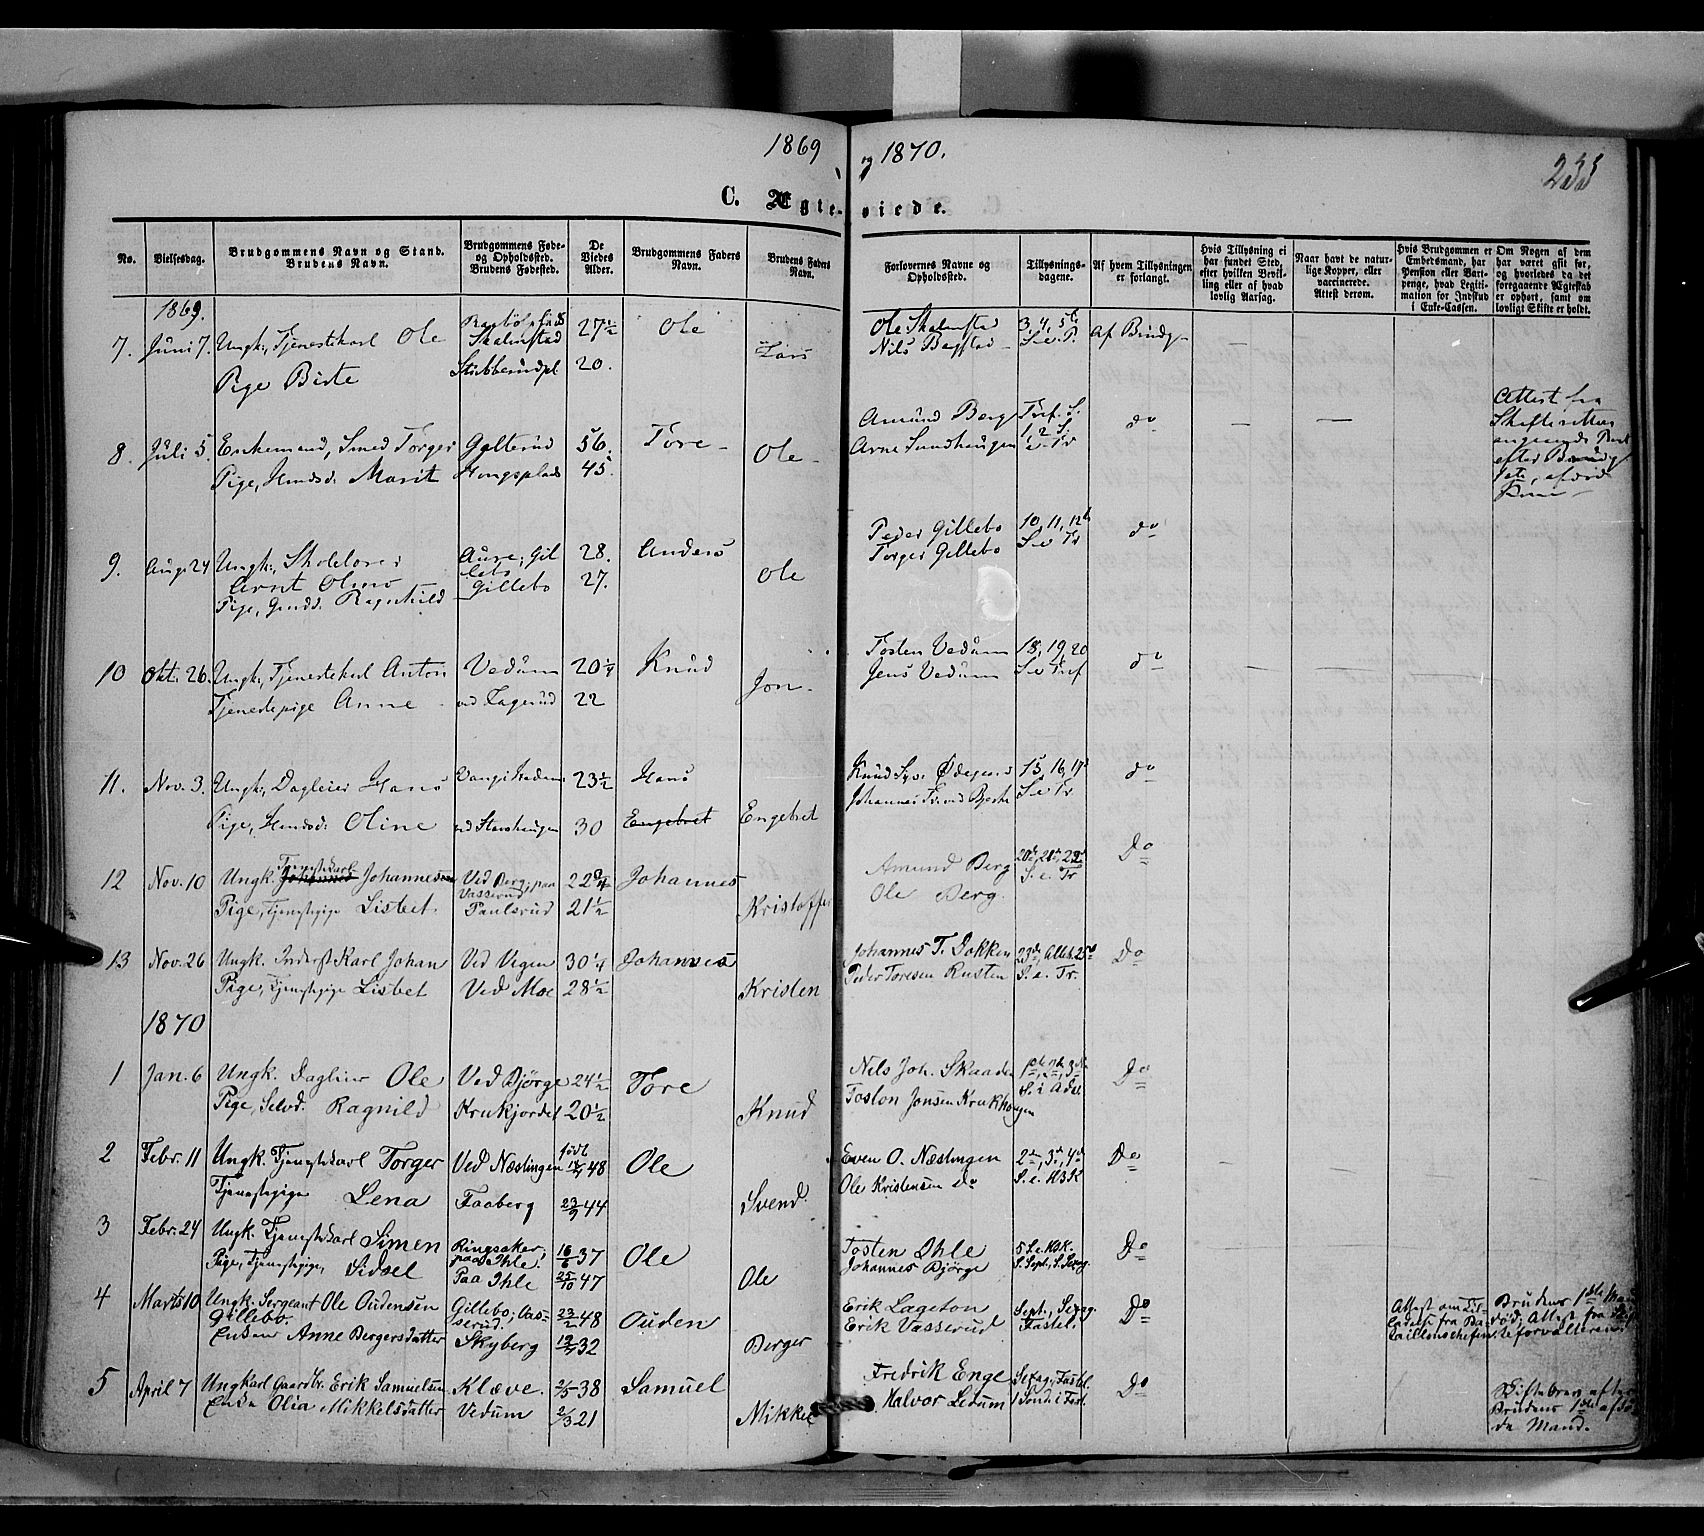 1869 og 1870.
235
C. Ægteviede.
No.
Vielsesdag.
Brudgommens Navn og Stand.
Brudens Navn.
Brudgommens Føde-
og Opholdssted.
Brudens Fødested.
De
Viedes
Alder.
Brudgommens Faders
Navn.
Brudens Faders
Navn.
Forlovernes Navne og
Opholdssted.
Tillysnings-
dagene.
Af hvem Tillysningen
er forlangt.
Hvis Tillysning ei
har fundet Sted,
efter hvilken Bevil-
ling eller af hvad
lovlig Aarsag.
Naar havt de natur-
lige Kopper, eller
vaccinerede.
Attest derom.
Hvis Brudgommen er
Embedsmand, har
Pension eller Vart-
penge, hvad Legiti-
mation for Indskud
i Enke-Cassen.
Om Nogen af dem
har været gift før,
og hvorledes da det
foregaaende Ægteskab
er ophørt, samt om
lovligt Skifte er holdt.
1869.
7. Juni 7. Ungk., Tjenestekarl Ole Skalmstad 27½ Ole Lars Ole Skalmstad 3, 4, 5 Af Brudg.
Nils Bagstad S. e. P.
Pige Birte Stubberudpl 20.
8. Juli 5. Enkemand, Smed Torger Gylterud 56. Tore Ole Amund Berg Tref. S. do
Arne Sundhaugen 1, 2 S. e. Tr
Pige, Huusd. Marit 45.
Attest fra
Skifteretten
angaaende
efter Brudg.
afdød
9. Aug. 24 Ungk., Skolelærer Aure, Gil 28. Anders Ole Peder Gillebo 10, 11, 12 do
lebo Torger Gillebo S. e. Tr
Arnt Olsen
Pige, Gaardd. Ragnhild Gillebo 27.
10 Okt. 26. Ungk., Tjenestekarl Anton Vedum 20¼ Knud Jon Tosten Vedum 18, 19, 20 do
Jens Vedum S. e. Tref
Tjenestepige Anne ved Fagerud 22
11. Nov. 3. Ungk., Dagleier Hans 23½ Hans Engebret Knud Syv. Ødegaard 15, 16, 17 do
S. e. Tr.
Pige, Huusd. Oline 30 Engebret
12 Nov. 10 Ungk. Tjenestekarl Johannes Ved Berg, paa 22¾ Johannes Kristoffer Amund Berg 20de, 21de, 22de Do
Vasserud Ole Berg. S. e. Tr
Pige, Tjenestepige Lisbet. Paulsrud 21½
13 Nov. 26 Ungk. Inderst Karl Johan Ved Vigen 30¼ Johannes Kristen Johannes T. Dokken 23de, Alleh. 25de Do
Peder Toresen Rusten S. e. Tr.
Pige, Tjenestepige Lisbet Ved Moe 28½
1870
1 Jan. 6 Ungk. Dagleier Ole Ved Bjørge 24½ Tore Knud Nils Joh. Skaaden 1ste, 2den, 3die Do
Toston Jonsen Krukhougen S. i Adv.
Pige, Selvd. Ragnild Krukjordet 20½
2 Febr. 11 Ungk. Tjenestekarl Torger Ved Næstingen født 48 Ole Svend Even O. Næstingen 2den, 3die, 4de Do
Ole Kristensen do S. e. H3K
Tjenestepige Lena Faaberg 23/9 44
3 Febr. 24 Ungk. Tjenestekarl Simen Ringsaker; 16/6 37 Ole Ole Tosten Ihle 5 S. e. H3K. Do
paa Ihle. Johannes Bjørge S. Sept., S. Sexag.
Pige, Tjenestepige, Sidsel Paa Ihle 25/10 47
4 Marts 10 Ungk. Sergeant Ole Oudensen Gillebo; Vas- 23/2 48 Ouden Berger Erik Lageton Sept., Sexag. Do
Gillebo. serud. Erik Vasserud Fastel.
Enken Anne Bergersdatter Skyberg 32
Attest om Til-
ladelse fra Ba-
taillonschefen
Brudens 1ste Mand
død; Attest fra Skif-
teforvalteren
5 April 7 Ungkarl Gaardbr. Erik Samuelsen Klæve. 2/5 38 Samuel Mikkel Fredrik Enge Sexag., Fastel. Do
Halvor Ledum 1 Sond. i Fast.
Enke Olia Mikkelsdatter Vedum 2/3 21
Skiftebrev efter
Brudens 1ste afdø-
de Mand.